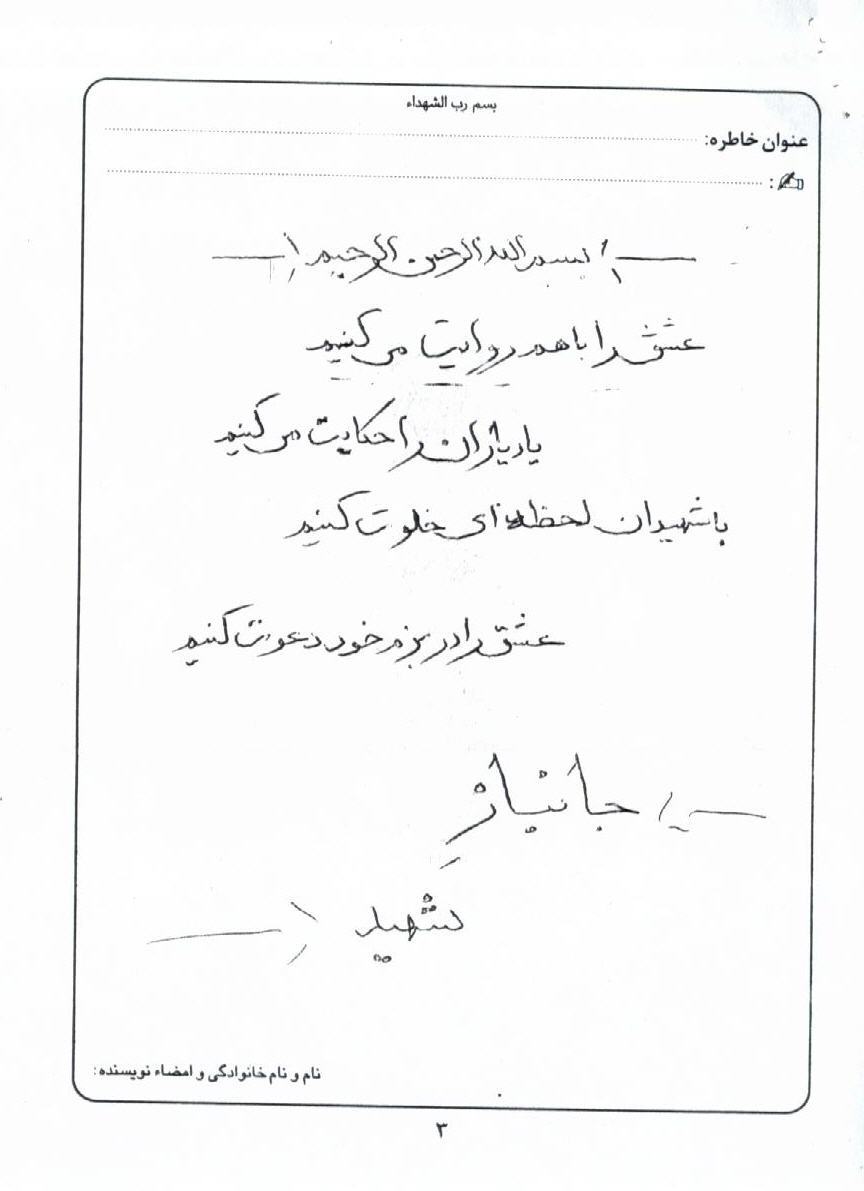 بسم رب الشهداء
عنوان خاطره:
:
بسم الله الرحمن الرحیم
عشق را با هم روایت می کنیم
یاد یاران را حکایت می کنیم
با شهیدان لحظه ای خلوت کنیم
عشق را در بزم خود دعوت کنیم
جانباز
شهید
نام و نام خانوادگی و امضاء نویسنده:
۳